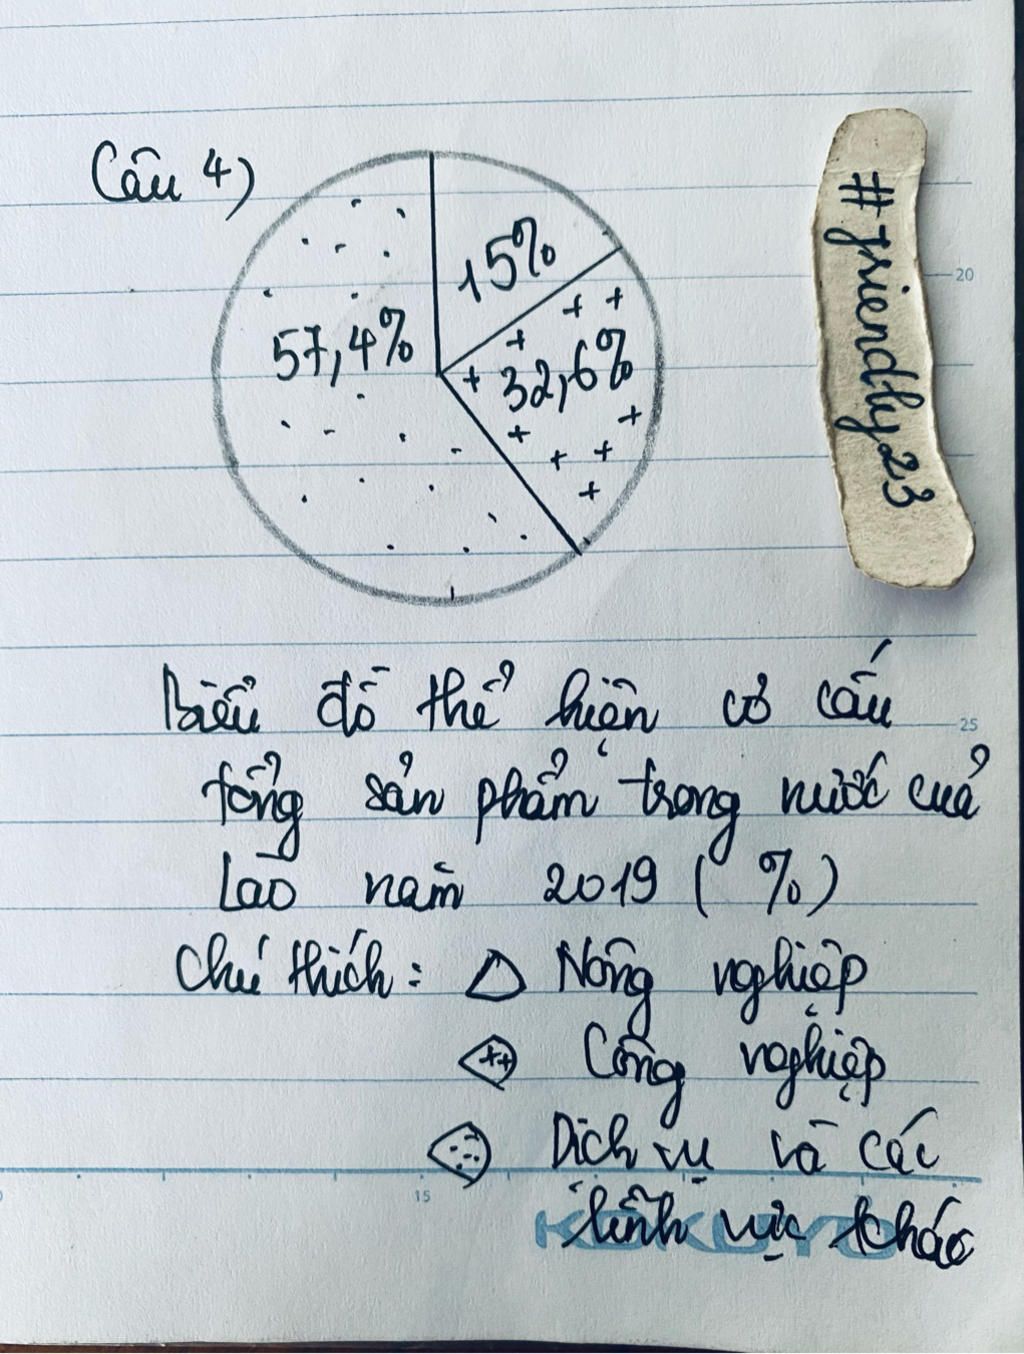 Câu 4)
15%
57,4%
32,6%
#friendly23
20
Biểu đồ thể hiện cơ cấu
25
tổng sản phẩm trong nước của
Lào năm 2019 (%)
Chú thích: Nông nghiệp
++ Công nghiệp
Dịch vụ và các
15
lĩnh vực khác
KOKUYO